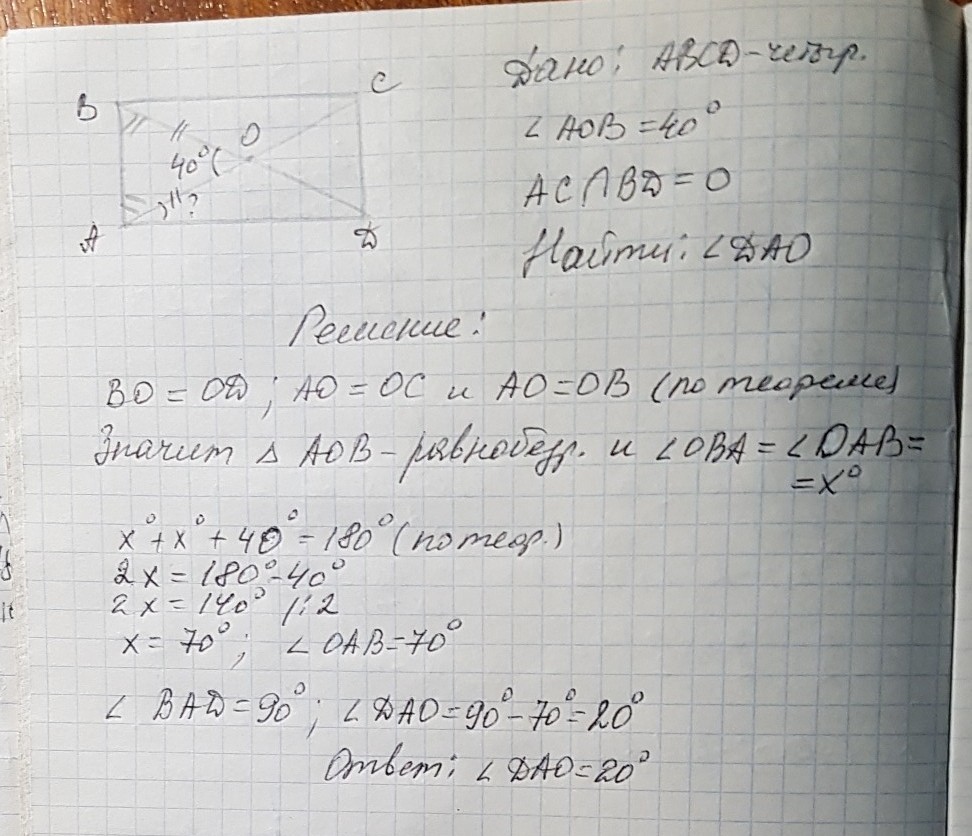 B
C
O
40°
?
A
D
Дано: ABCD – четыр.
∠ AOB = 40°
AC ∩ BD = O
Найти: ∠ DAO
Решение:
BO = OD; AO = OC и AO = OB (по теореме)
Значит △ AOB – равнобедр. и ∠ OBA = ∠ OAB =
= x°
x° + x° + 40° = 180° (по теор.)
2x = 180° - 40°
2x = 140° /:2
x = 70°; ∠ OAB = 70°
∠ BAD = 90°; ∠ DAO = 90° - 70° = 20°
Ответ: ∠ DAO = 20°